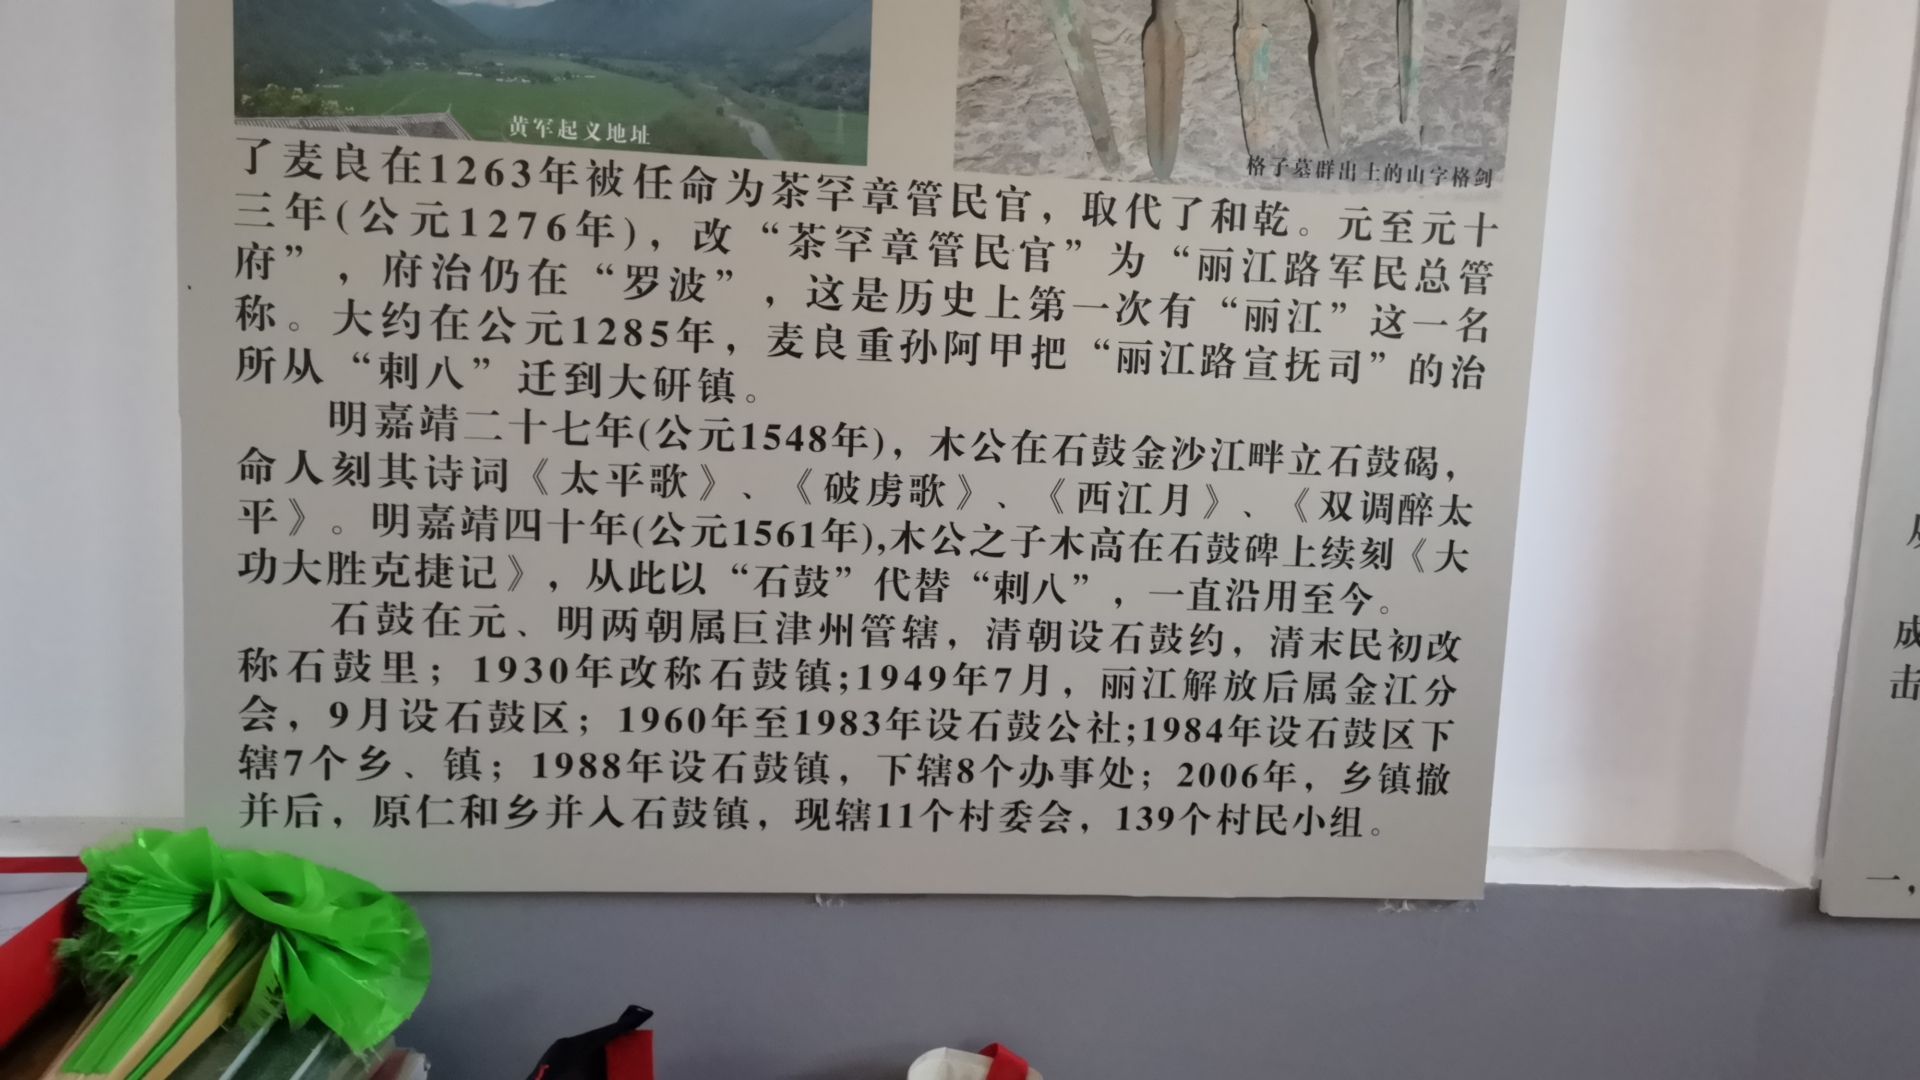 黄军起义地址
格子墓群出土的山字格剑
了麦良在1263年被任命为茶罕章管民官，取代了和乾。元至元十
三年(公元1276年)，改“茶罕章管民官”为“丽江路军民总管
府”，府治仍在“罗波”，这是历史上第一次有“丽江”这一名
称。大约在公元1285年，麦良重孙阿甲把“丽江路宣抚司”的治
所从“刺八”迁到大研镇。
明嘉靖二十七年(公元1548年)，木公在石鼓金沙江畔立石鼓碣，
命人刻其诗词《太平歌》、《破虏歌》、《西江月》、《双调醉太
平》。明嘉靖四十年(公元1561年),木公之子木高在石鼓碑上续刻《大
功大胜克捷记》，从此以“石鼓”代替“刺八”，一直沿用至今。
石鼓在元、明两朝属巨津州管辖，清朝设石鼓约，清末民初改
称石鼓里；1930年改称石鼓镇;1949年7月，丽江解放后属金江分
会，9月设石鼓区；1960年至1983年设石鼓公社;1984年设石鼓区下
辖7个乡、镇；1988年设石鼓镇，下辖8个办事处；2006年，乡镇撤
并后，原仁和乡并入石鼓镇，现辖11个村委会，139个村民小组。
成
击
一，